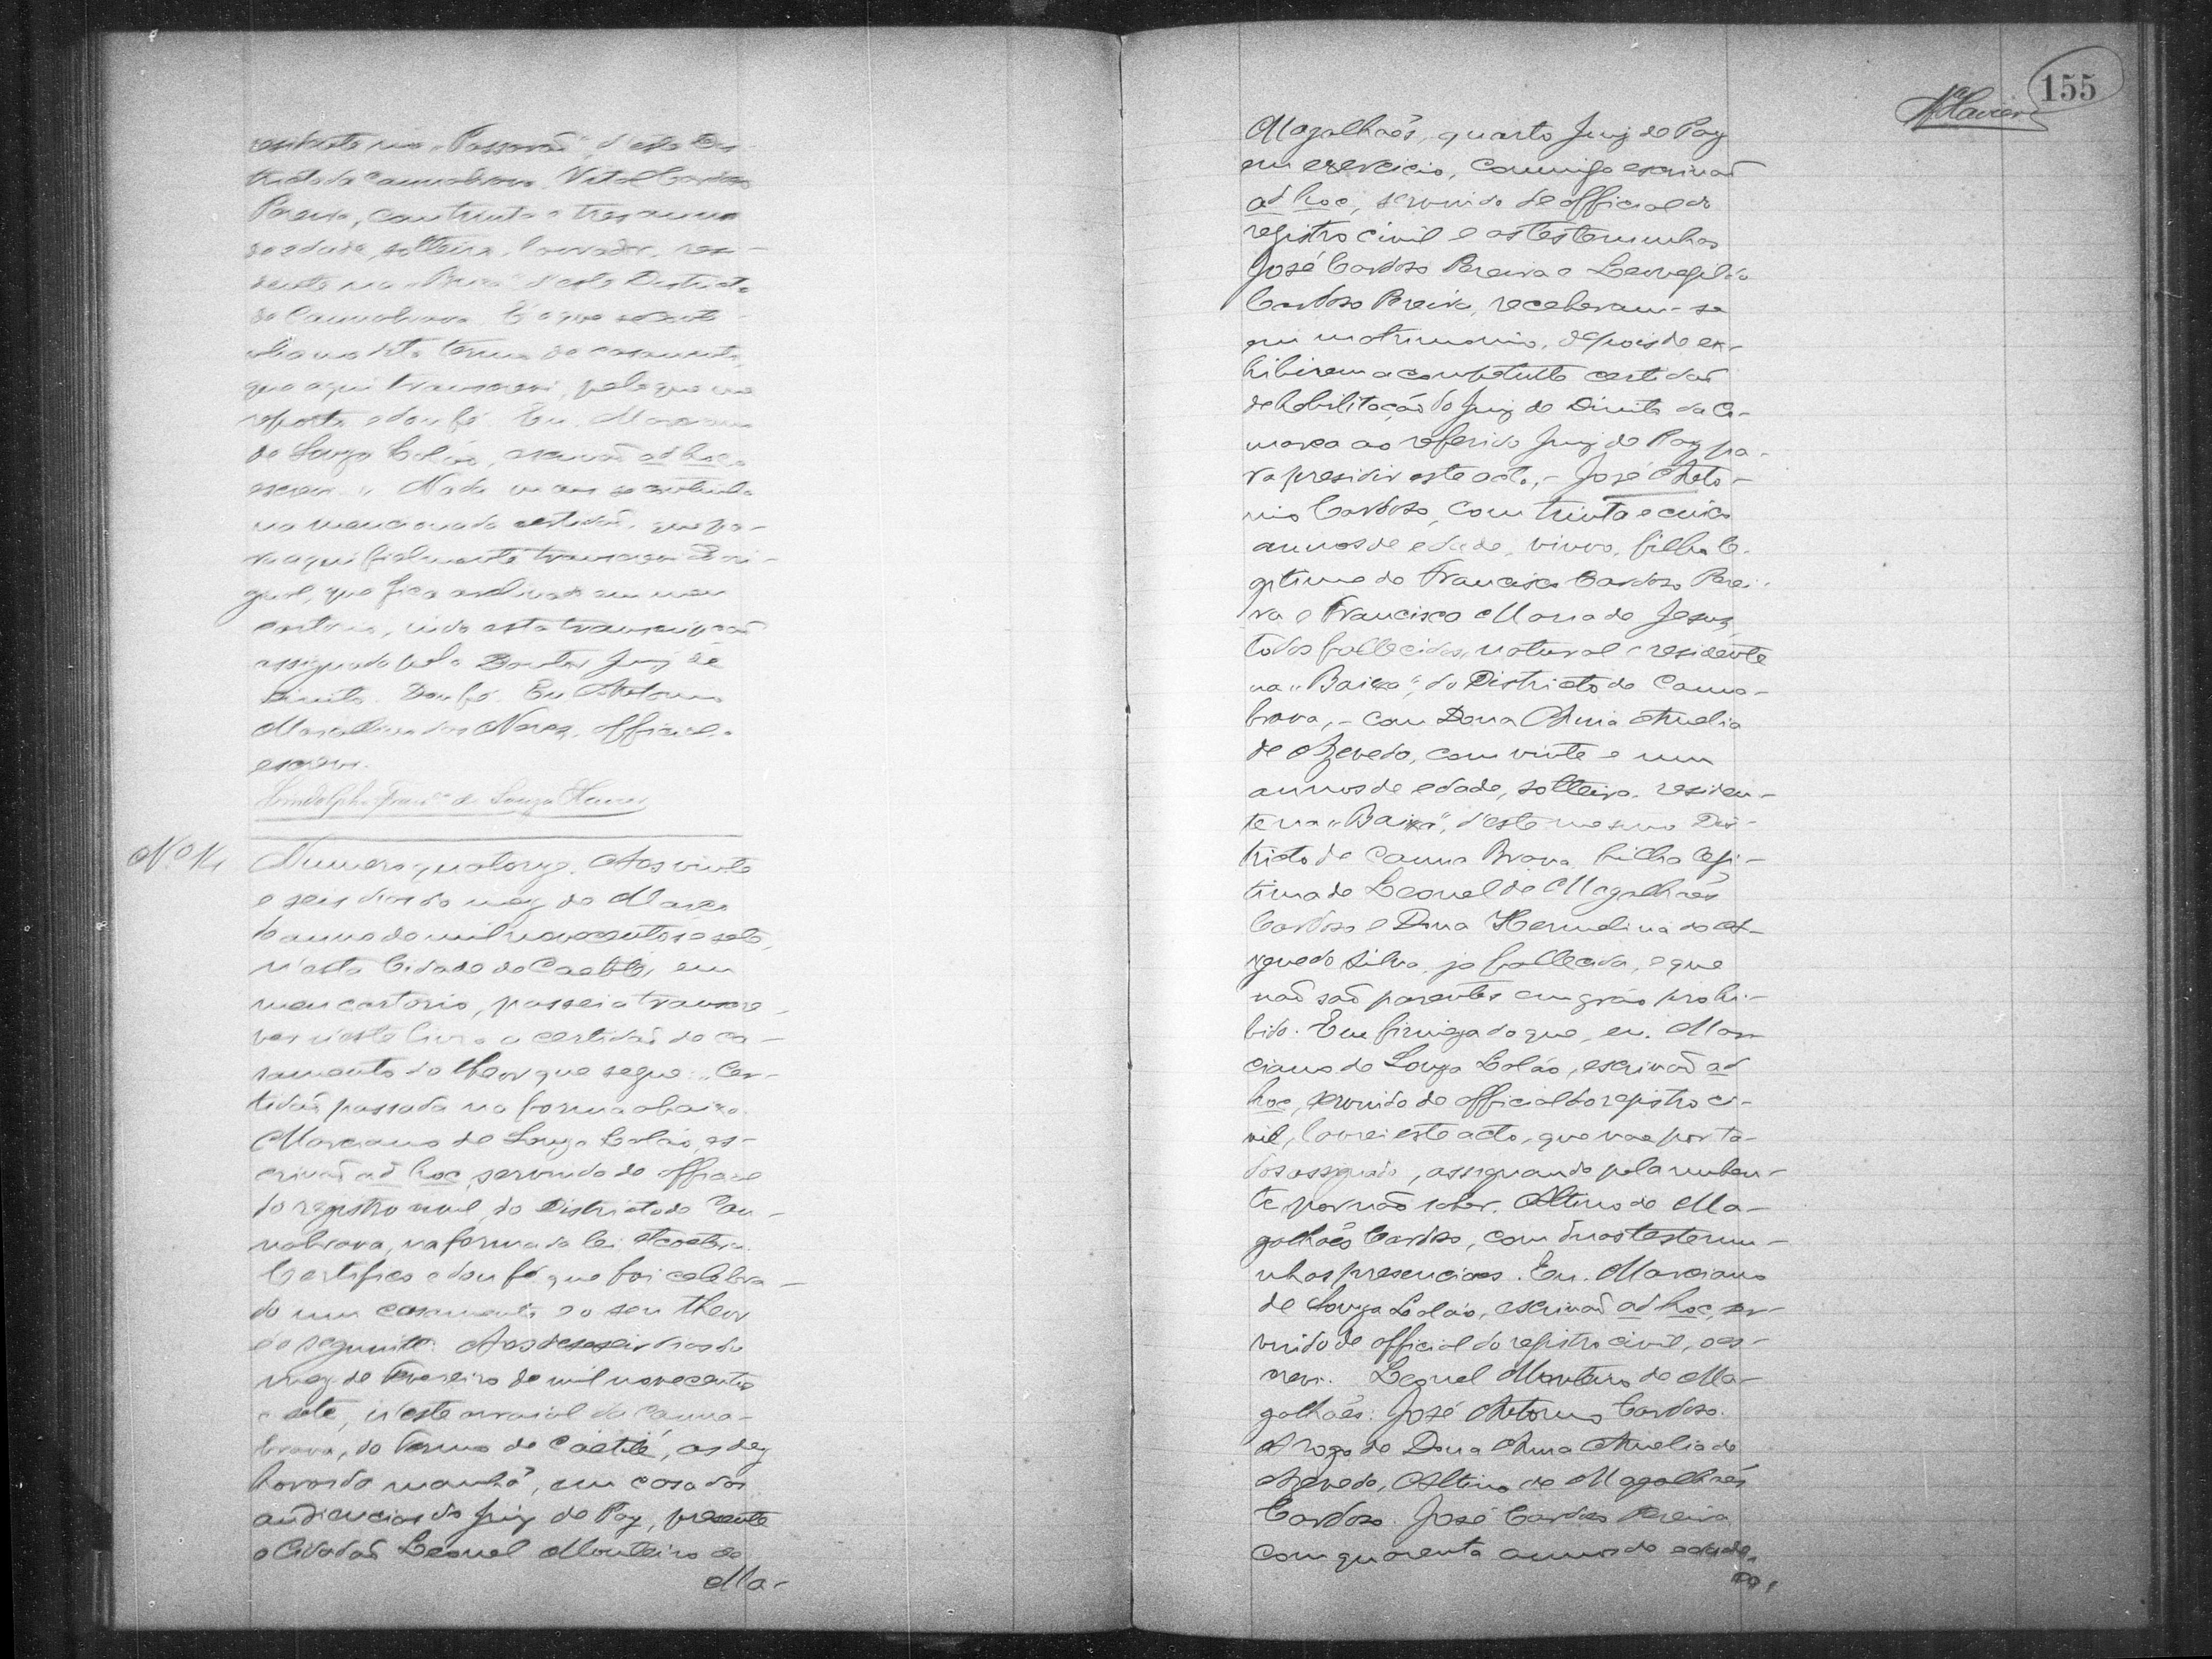 residente na "Passarão", d'este Dis-
tricto de Cannabrava. Vital Cardoso
Pereira, com trinta e tres annos
de edade, solteiro, lavrador, resi-
dente na "Baixa" d'este Districto
de Cannabrava. É o que se conti-
nha no dito termo de casamento,
que aqui transcrevi, pelo que me
reporto e dou fé. Eu, Marciano
de Souza Lolão, escrivão ad hoc o
escrevi." Nada mais se continha
na mencionada certidão, que pa-
ra aqui fielmente transcrevi do ori-
ginal, que fica archivado em meu
cartorio, indo esta transcripção
assignada pelo Doutor Juiz de
Direito. Dou fé. Eu Antonio
Marcellino das Neves, official o
escrevi.
Lindolpho Franco de Souza
No. 14
Numero quatorze. Aos vinte
e seis dias do mez de Março
do anno de mil novecentos e sete,
n'esta Cidade do Caetité, em
meu cartorio, passei a transcre-
ver n'este livro a certidão de ca-
samento do theor que segue: "Cer-
tidão passada na forma abaixo.
Marciano de Souza Lolão, es-
crivão ad hoc, servindo de official
do registro civil, do Districto de Can-
nabrava, na forma da lei etcoetera.
Certifico e dou fé que foi celebra-
do um casamento e o seu theor
é o seguinte: Aos deseseis dias do
mez de Fevereiro de mil novecentos
e sete, n'este arraial da Canna-
brava, do Termo de Caetité, as dez
horas da manhã, em casa das
audiencias do Juiz de Paz, presente
o Cidadão Leonel Monteiro de
Ma-
155
Magalhães, quarto Juiz de Paz
em exercicio, commigo escrivão
ad hoc, servindo de official do
registro civil e as testemunhas
José Cardoso Pereira e Leovegildo
Cardoso Pereira, receberam-se
em matrimonio, depois de ex-
hibirem a competente certidão
de habilitação do Juiz de Direito da Co-
marca ao referido Juiz de Paz pa-
ra presidir este acto,- José Anto-
nio Cardoso, com trinta e cinco
annos de edade, viuvo, filho le-
gitimo de Francisco Cardoso Perei-
ra e Francisca Maria de Jesus,
todos fallecidos, natural e residente
na "Baixa", do Districto de Canna-
brava,- com Dona Anna Amelia
de Azevedo, com vinte e um
annos de edade, solteira, residen-
te na "Baixa", d'este mesmo Dis-
tricto de Canna Brava, filha legi-
tima de Leonel de Magalhães
Cardoso e Dona Hermelina de A-
zevedo Silva, ja fallecida, e que
não são parentes em gráo prohi-
bido. Em firmeza do que, eu, Mar-
ciano de Souza Lolão, escrivão ad
hoc, servindo de official do registro ci-
vil, lavrei este acto, que vae por to-
dos assignado, assignando pela nuben-
te por não saber. Altino de Ma-
galhães Cardoso, com duas testemu-
nhas presenciaes. Eu, Marciano
de Souza Lolão, escrivão ad hoc, ser-
vindo de official do registro civil, o es-
crevi. Leonel Monteiro de Ma-
galhães. José Antonio Cardoso.
A rogo de Dona Anna Amelia de
Azevedo, Altino de Magalhães
Cardoso. José Cardoso Pereira
com quarenta annos de edade,